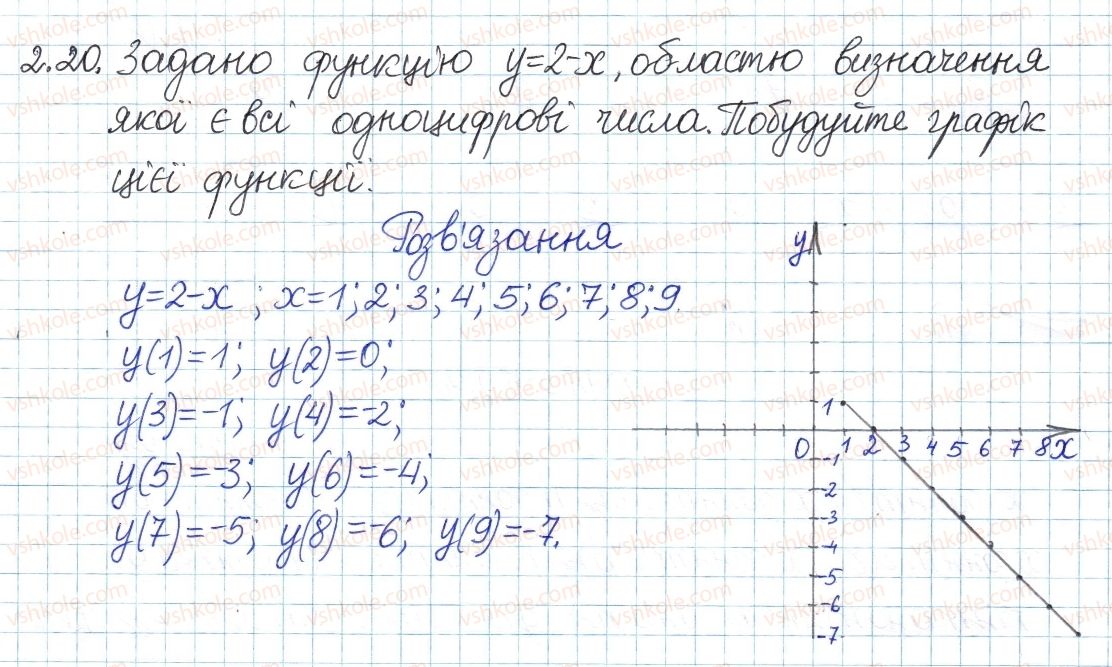 2.20. Задано функцію y=2-x, областю визначення
якої є всі одноцифрові числа. Побудуйте графік
цієї функції.
Розв'язання
y=2-x ; x=1; 2; 3; 4; 5; 6; 7; 8; 9.
y(1)=1; y(2)=0;
y(3)=-1; y(4)=-2;
y(5)=-3; y(6)=-4;
y(7)=-5; y(8)=-6; y(9)=-7.
y
1
0 1 2 3 4 5 6 7 8 x
-1
-2
-3
-4
-5
-6
-7
vshkole.com